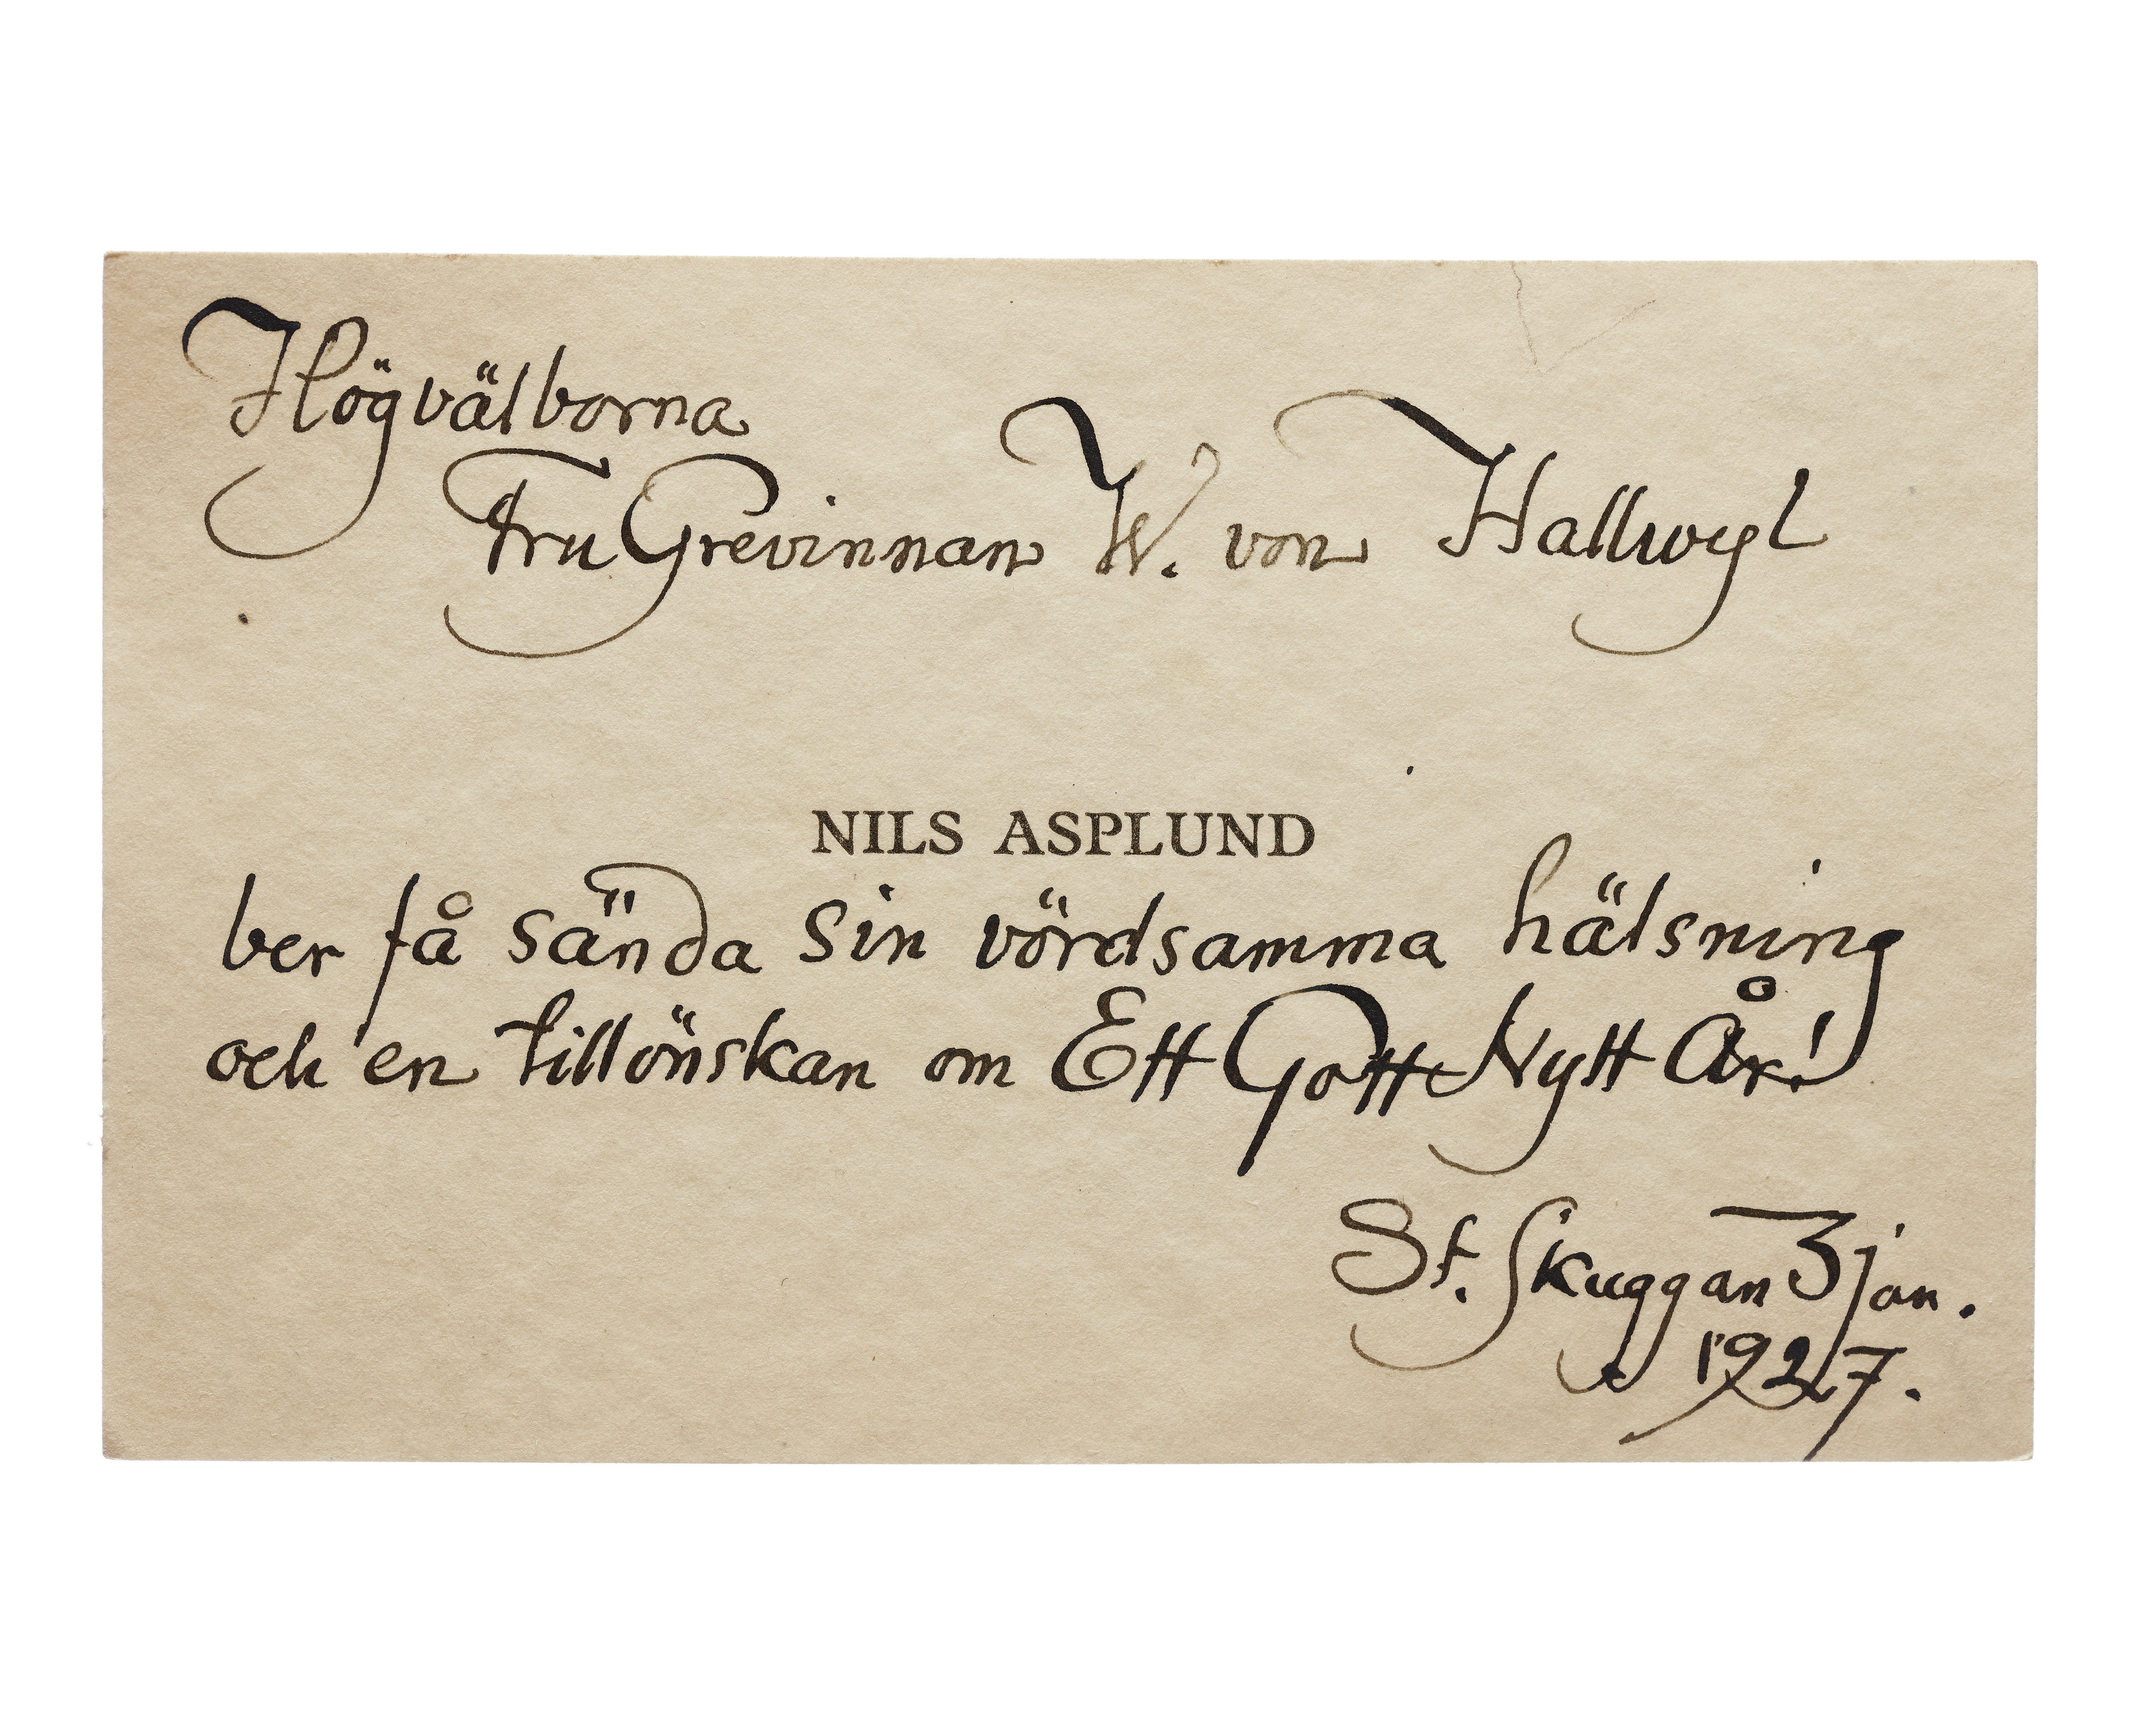 Högvälborna
Fru Grevinnan W. von Hallwyl
NILS ASPLUND
ber få sända sin vördsamma hälsning
och en tillönskan om Ett Gott Nytt År!
St. Skuggan 3 jan.
1927.